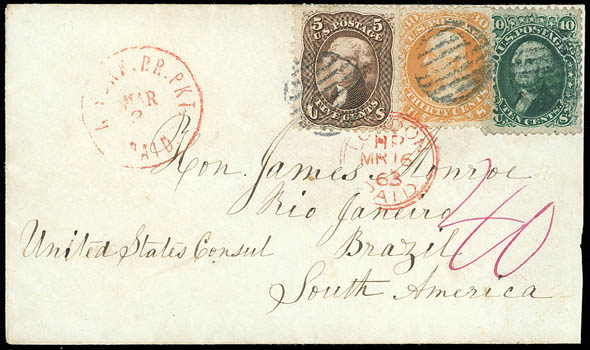 5 U.S. POSTAGE 5
FIVE CENTS
30 U.S. POSTAGE 30
THIRTY CENTS
10 U.S. POSTAGE 10
TEN CENTS
N.YORK. BR. PKT.
MAR
PAID
LONDON
MR 16
63
PAID
Hon. James Monroe
Rio Janeiro
United States Consul Brazil
South America
40